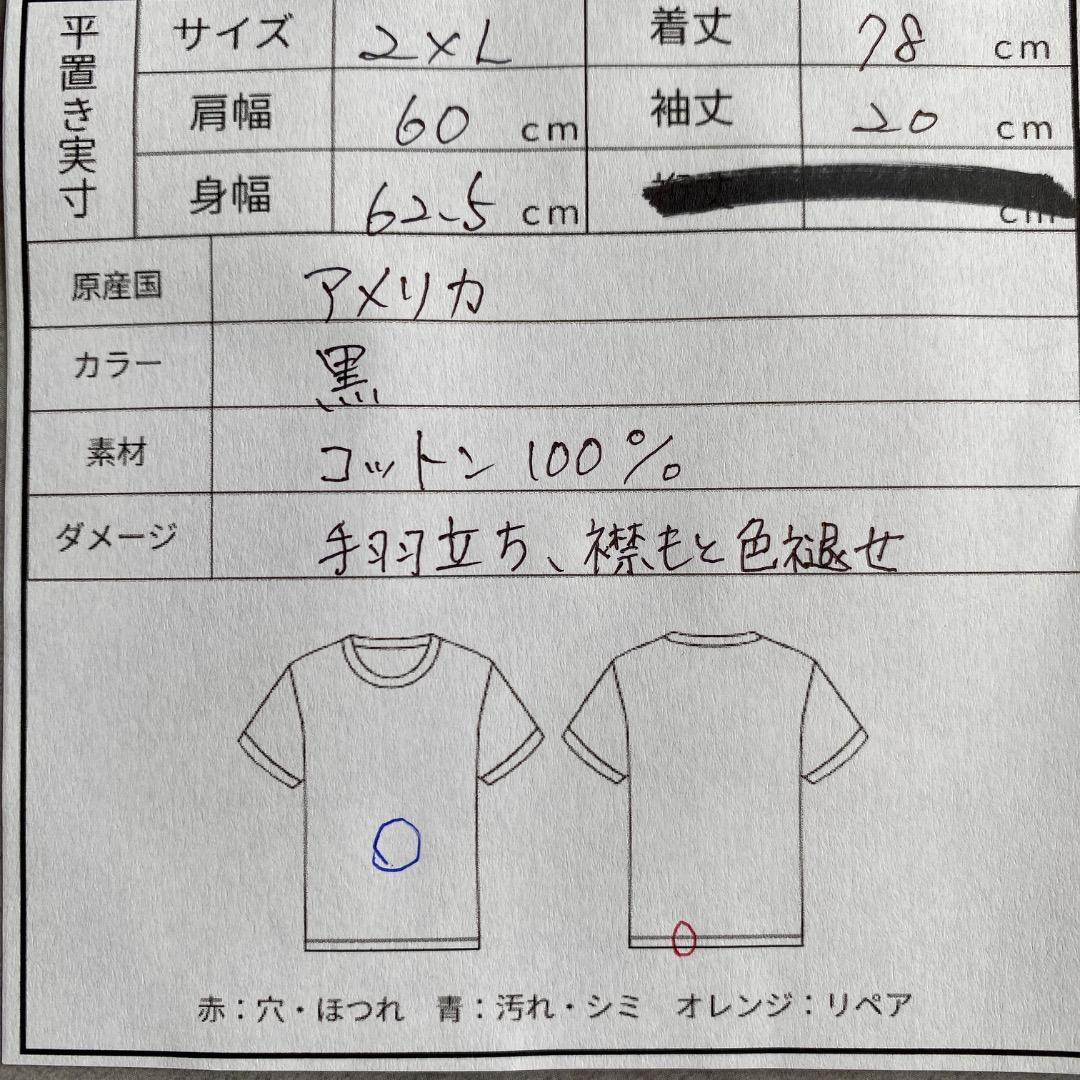 平置き実寸
サイズ 2XL 着丈 78 cm
肩幅 60 cm 袖丈 20 cm
身幅 62.5 cm cm
原産国 アメリカ
カラー 黒
素材 コットン 100%
ダメージ 毛羽立ち、襟もと色褪せ
赤：穴・ほつれ 青：汚れ・シミ オレンジ：リペア